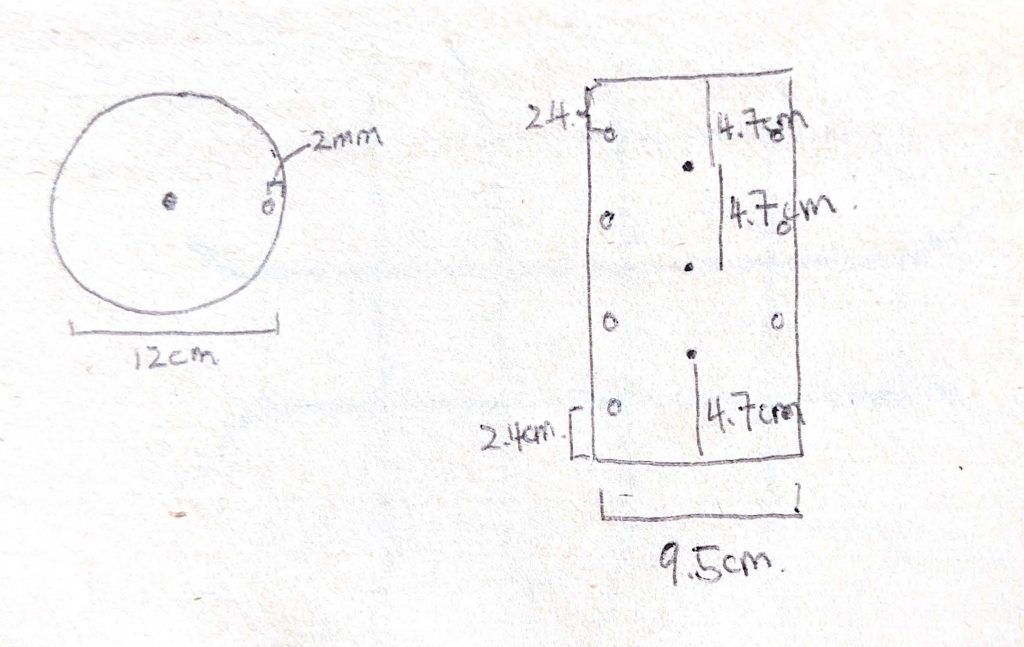 2mm
12cm
24.
4.7cm
4.7cm.
2.4cm.
4.7cm
9.5cm.